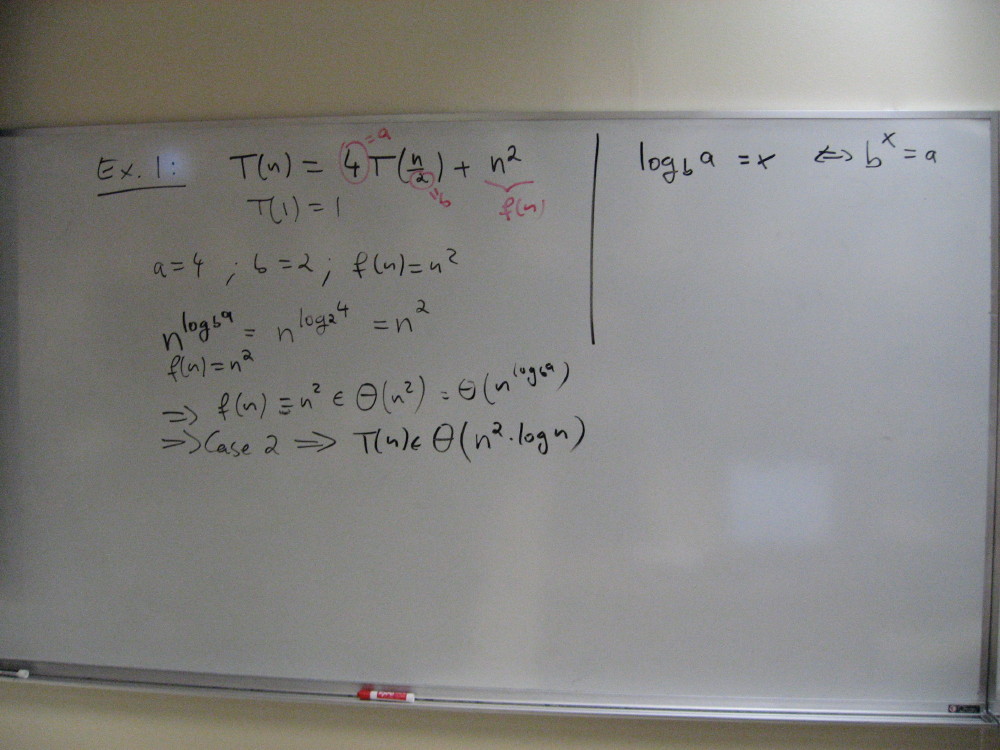 Ex. 1: T(n) = 4T(n/2) + n²
= a
= b
f(n)
T(1) = 1
a = 4 ; b = 2 ; f(n) = n²
n^(log_b a) = n^(log_2 4) = n²
f(n) = n²
⇒ f(n) = n² ∈ Θ(n²) = Θ(n^(log_b a))
⇒ Case 2 ⇒ T(n) ∈ Θ(n² · log n)
log_b a = x ⇔ b^x = a